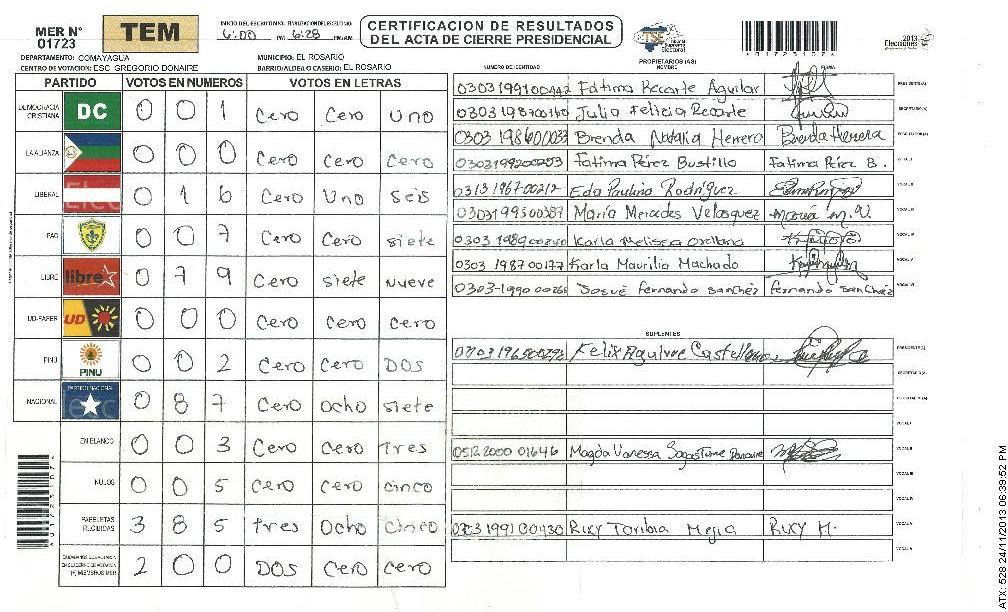 MER N° 01723
TEM
INICIO DEL ESCRUTINIO: FINALIZACION DEL ESCRUTINIO:
6:00 PM 6:28 PM/AM
CERTIFICACION DE RESULTADOS
DEL ACTA DE CIERRE PRESIDENCIAL
TSE Tribunal Supremo Electoral
01723107
2013
Elecciones
DEPARTAMENTO: COMAYAGUA
MUNICIPIO: EL ROSARIO
CENTRO DE VOTACION: ESC GREGORIO DONAIRE
BARRIO/ALDEA O CASERIO: EL ROSARIO
PARTIDO VOTOS EN NUMEROS VOTOS EN LETRAS
DEMOCRACIA CRISTIANA DC 0 0 1 Cero Cero Uno
LA ALIANZA 0 0 0 Cero Cero Cero
LIBERAL 0 1 6 Cero Uno Seis
PAC 0 0 7 Cero Cero siete
LIBRE libre 0 7 9 Cero siete nueve
UD-FAPER UD 0 0 0 Cero Cero Cero
PINU PINU 0 0 2 Cero Cero DOS
NACIONAL PARTIDO NACIONAL 0 8 7 Cero ocho siete
EN BLANCO 0 0 3 Cero Cero tres
NULOS 0 0 5 Cero Cero cinco
PAPELETAS RECIBIDAS 3 8 5 tres Ocho Cinco
2 0 0 DOS Cero Cero
NUMERO DE IDENTIDAD PROPIETARIOS (AS) NOMBRE FIRMA
Fatima Recarte Aguilar PRESIDENTE(A)
Julia Felicia Recarte SECRETARIO(A)
Brenda Natalia Herrera Brenda Herrera ESCRUTADOR(A)
0303199200253 Fatima Pérez Bustillo Fatima Pérez B. VOCAL I
0313 1967-00212 Eda Paulina Rodríguez VOCAL II
0303199300387 María Mercedes Velasquez María M. V. VOCAL III
Karla Melissa Orellana VOCAL IV
0303 198700177 Karla Maurilia Machado VOCAL V
Josué Fernando Sanchéz Fernando Sanchéz VOCAL VI
SUPLENTES
Felix Aguirre Castellanos PRESIDENTE(A)
SECRETARIO(A)
ESCRUTADOR(A)
VOCAL I
0512 2000 01646 Magda Vanessa Sagastume Donaire VOCAL II
VOCAL III
VOCAL IV
0303 1991 00430 Ricy Toribia Mejia Ricy M. VOCAL V
VOCAL VI
ATX: 528 24/11/2013 06:39:52 PM